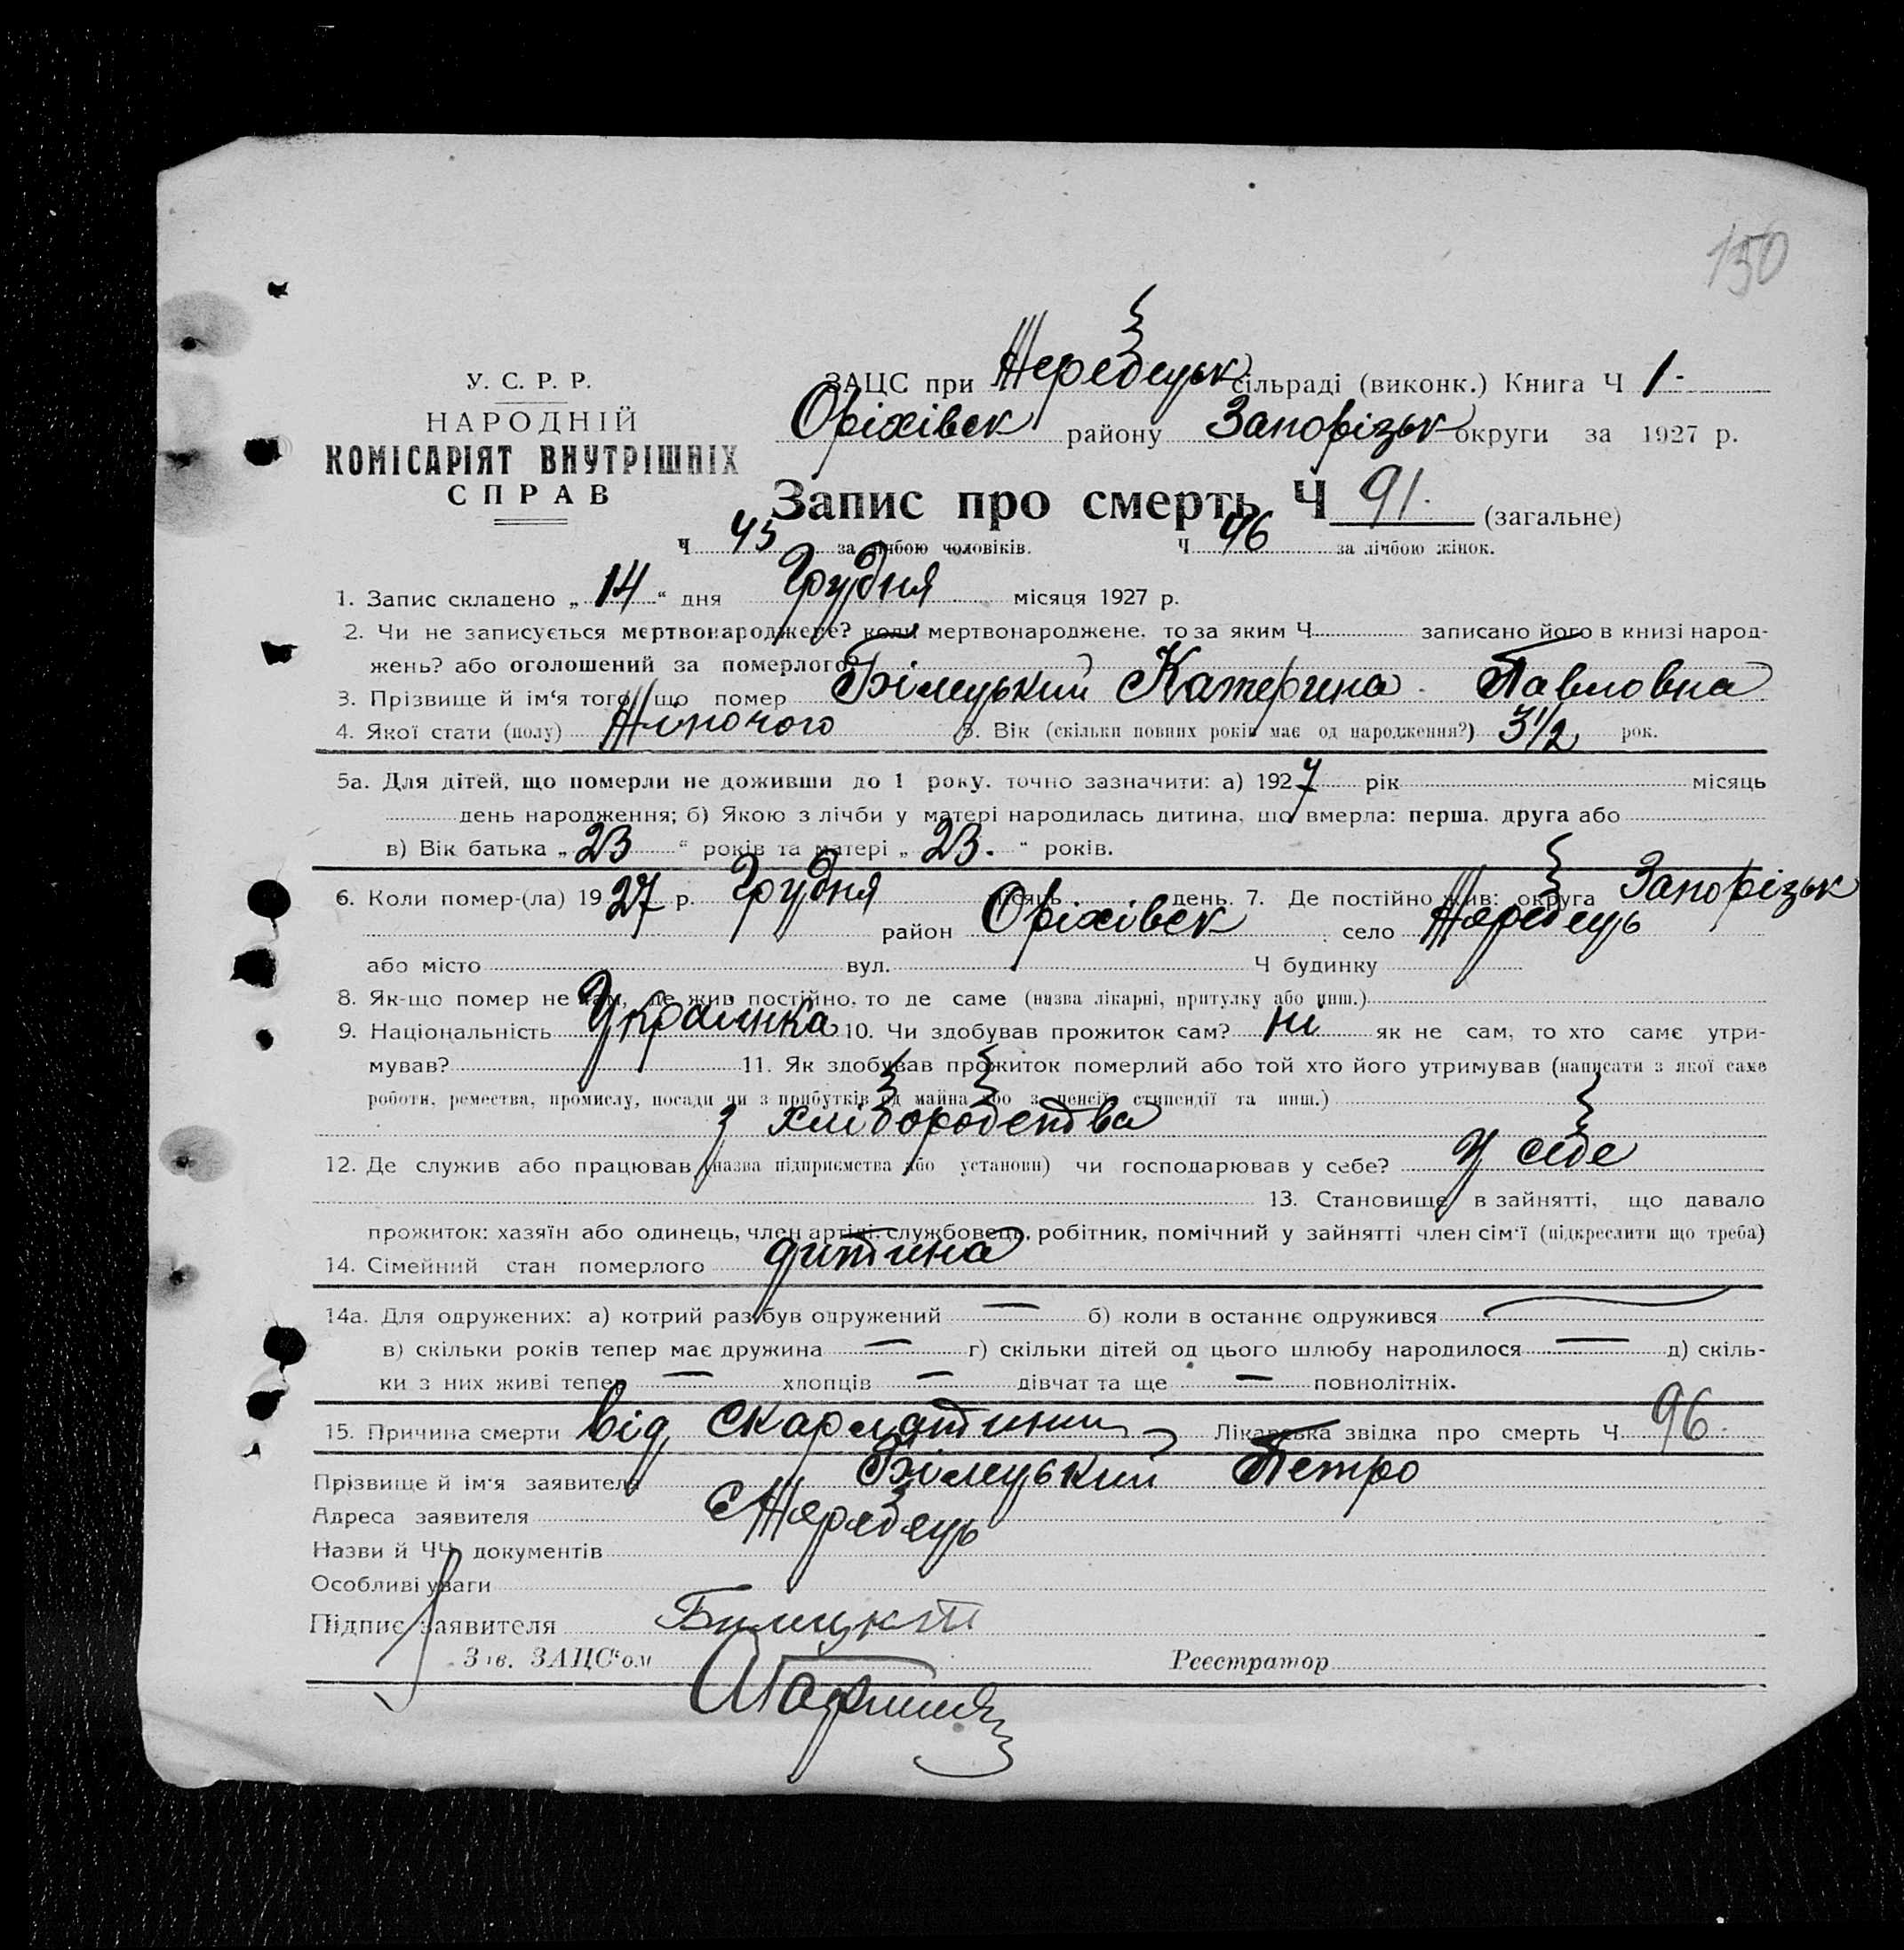 150
У. С. Р. Р.
НАРОДНІЙ
КОМІСАРІЯТ ВНУТРІШНІХ
СПРАВ
ЗАЦС при Жеребецьк сільраді (виконк.) Книга Ч 1-
Оріхівськ району Запорізьк округи за 1927 р.
Запис про смерть Ч 91. (загальне)
Ч 45 за лічбою чоловіків. Ч 46 за лічбою жінок.
1. Запис складено „ 14 “ дня Грудня місяця 1927 р.
2. Чи не записується мертвонароджене? коли мертвонароджене, то за яким Ч записано його в книзі народ-
жень? або оголошений за померлого?
3. Прізвище й ім‘я того, що помер Білецький Катерина Павловна
4. Якої стати (полу) Жіночого 5. Вік (скільки повних років має од народження?) 3 1/2 рок.
5а. Для дітей, що померли не доживши до 1 року, точно зазначити: а) 1927 рік місяць
день народження; б) Якою з лічби у матері народилась дитина, що вмерла: перша, друга або
в) Вік батька „ 23 “ років та матері „ 23. “ років.
6. Коли помер-(ла) 1927 р. Грудня місяць день. 7. Де постійно жив: округа Запорізьк
район Оріхівск село Жеребець
або місто вул. Ч будинку
8. Як-що помер не там, де жив постійно, то де саме (назва лікарні, притулку або инш.)
9. Національність Українка 10. Чи здобував прожиток сам? ні як не сам, то хто саме утри-
мував? 11. Як здобував прожиток померлий або той хто його утримував (написати з якої саме
роботи, ремества, промислу, посади чи з прибутків од майна або з пенсії, стипендії та инш.)
з хліборобства
12. Де служив або працював (назва підприємства або установи) чи господарював у себе? У себе
13. Становище в зайнятті, що давало
прожиток: хазяїн або одинець, член артілі, службовець, робітник, помічний у зайнятті член сім‘ї (підкреслити що треба)
14. Сімейний стан померлого дитина
14а. Для одружених: а) котрий раз був одружений — б) коли в останнє одружився —
в) скільки років тепер має дружина — г) скільки дітей од цього шлюбу народилося — д) скіль-
ки з них живі тепер — хлопців — дівчат та ще — повнолітніх.
15. Причина смерти від скарлатини Лікарська звідка про смерть Ч 96
Прізвище й ім‘я заявителя Білецький Петро
Адреса заявителя с Жеребець
Назви й ЧЧ документів
Особливі уваги
Підпис заявителя
Зав. ЗАЦС‘ом Реєстратор